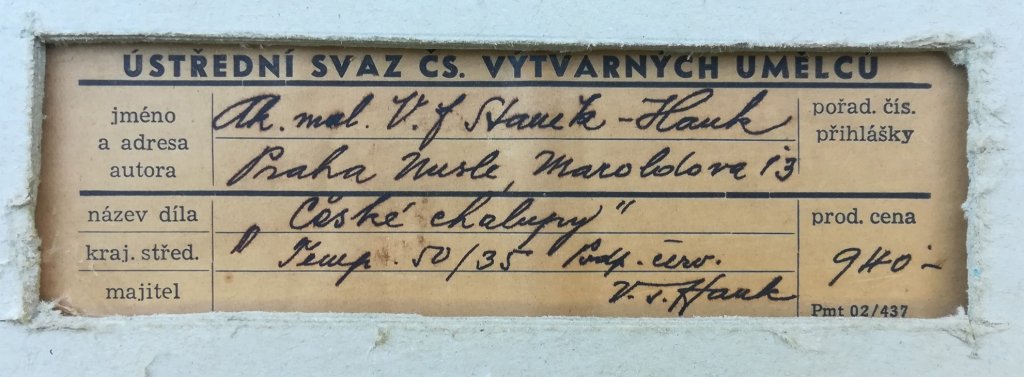 ÚSTŘEDNÍ SVAZ ČS. VÝTVARNÝCH UMĚLCŮ
jméno
a adresa
autora
Ak. mal. V. f Staněk - Hauk
Praha Nusle, Maroldova 13
pořad. čís.
přihlášky
název díla "České chalupy"
prod. cena
kraj. střed. " Temp. 50/35 Podp. červ.
940.-
majitel V. s. Hauk
Pmt 02/437